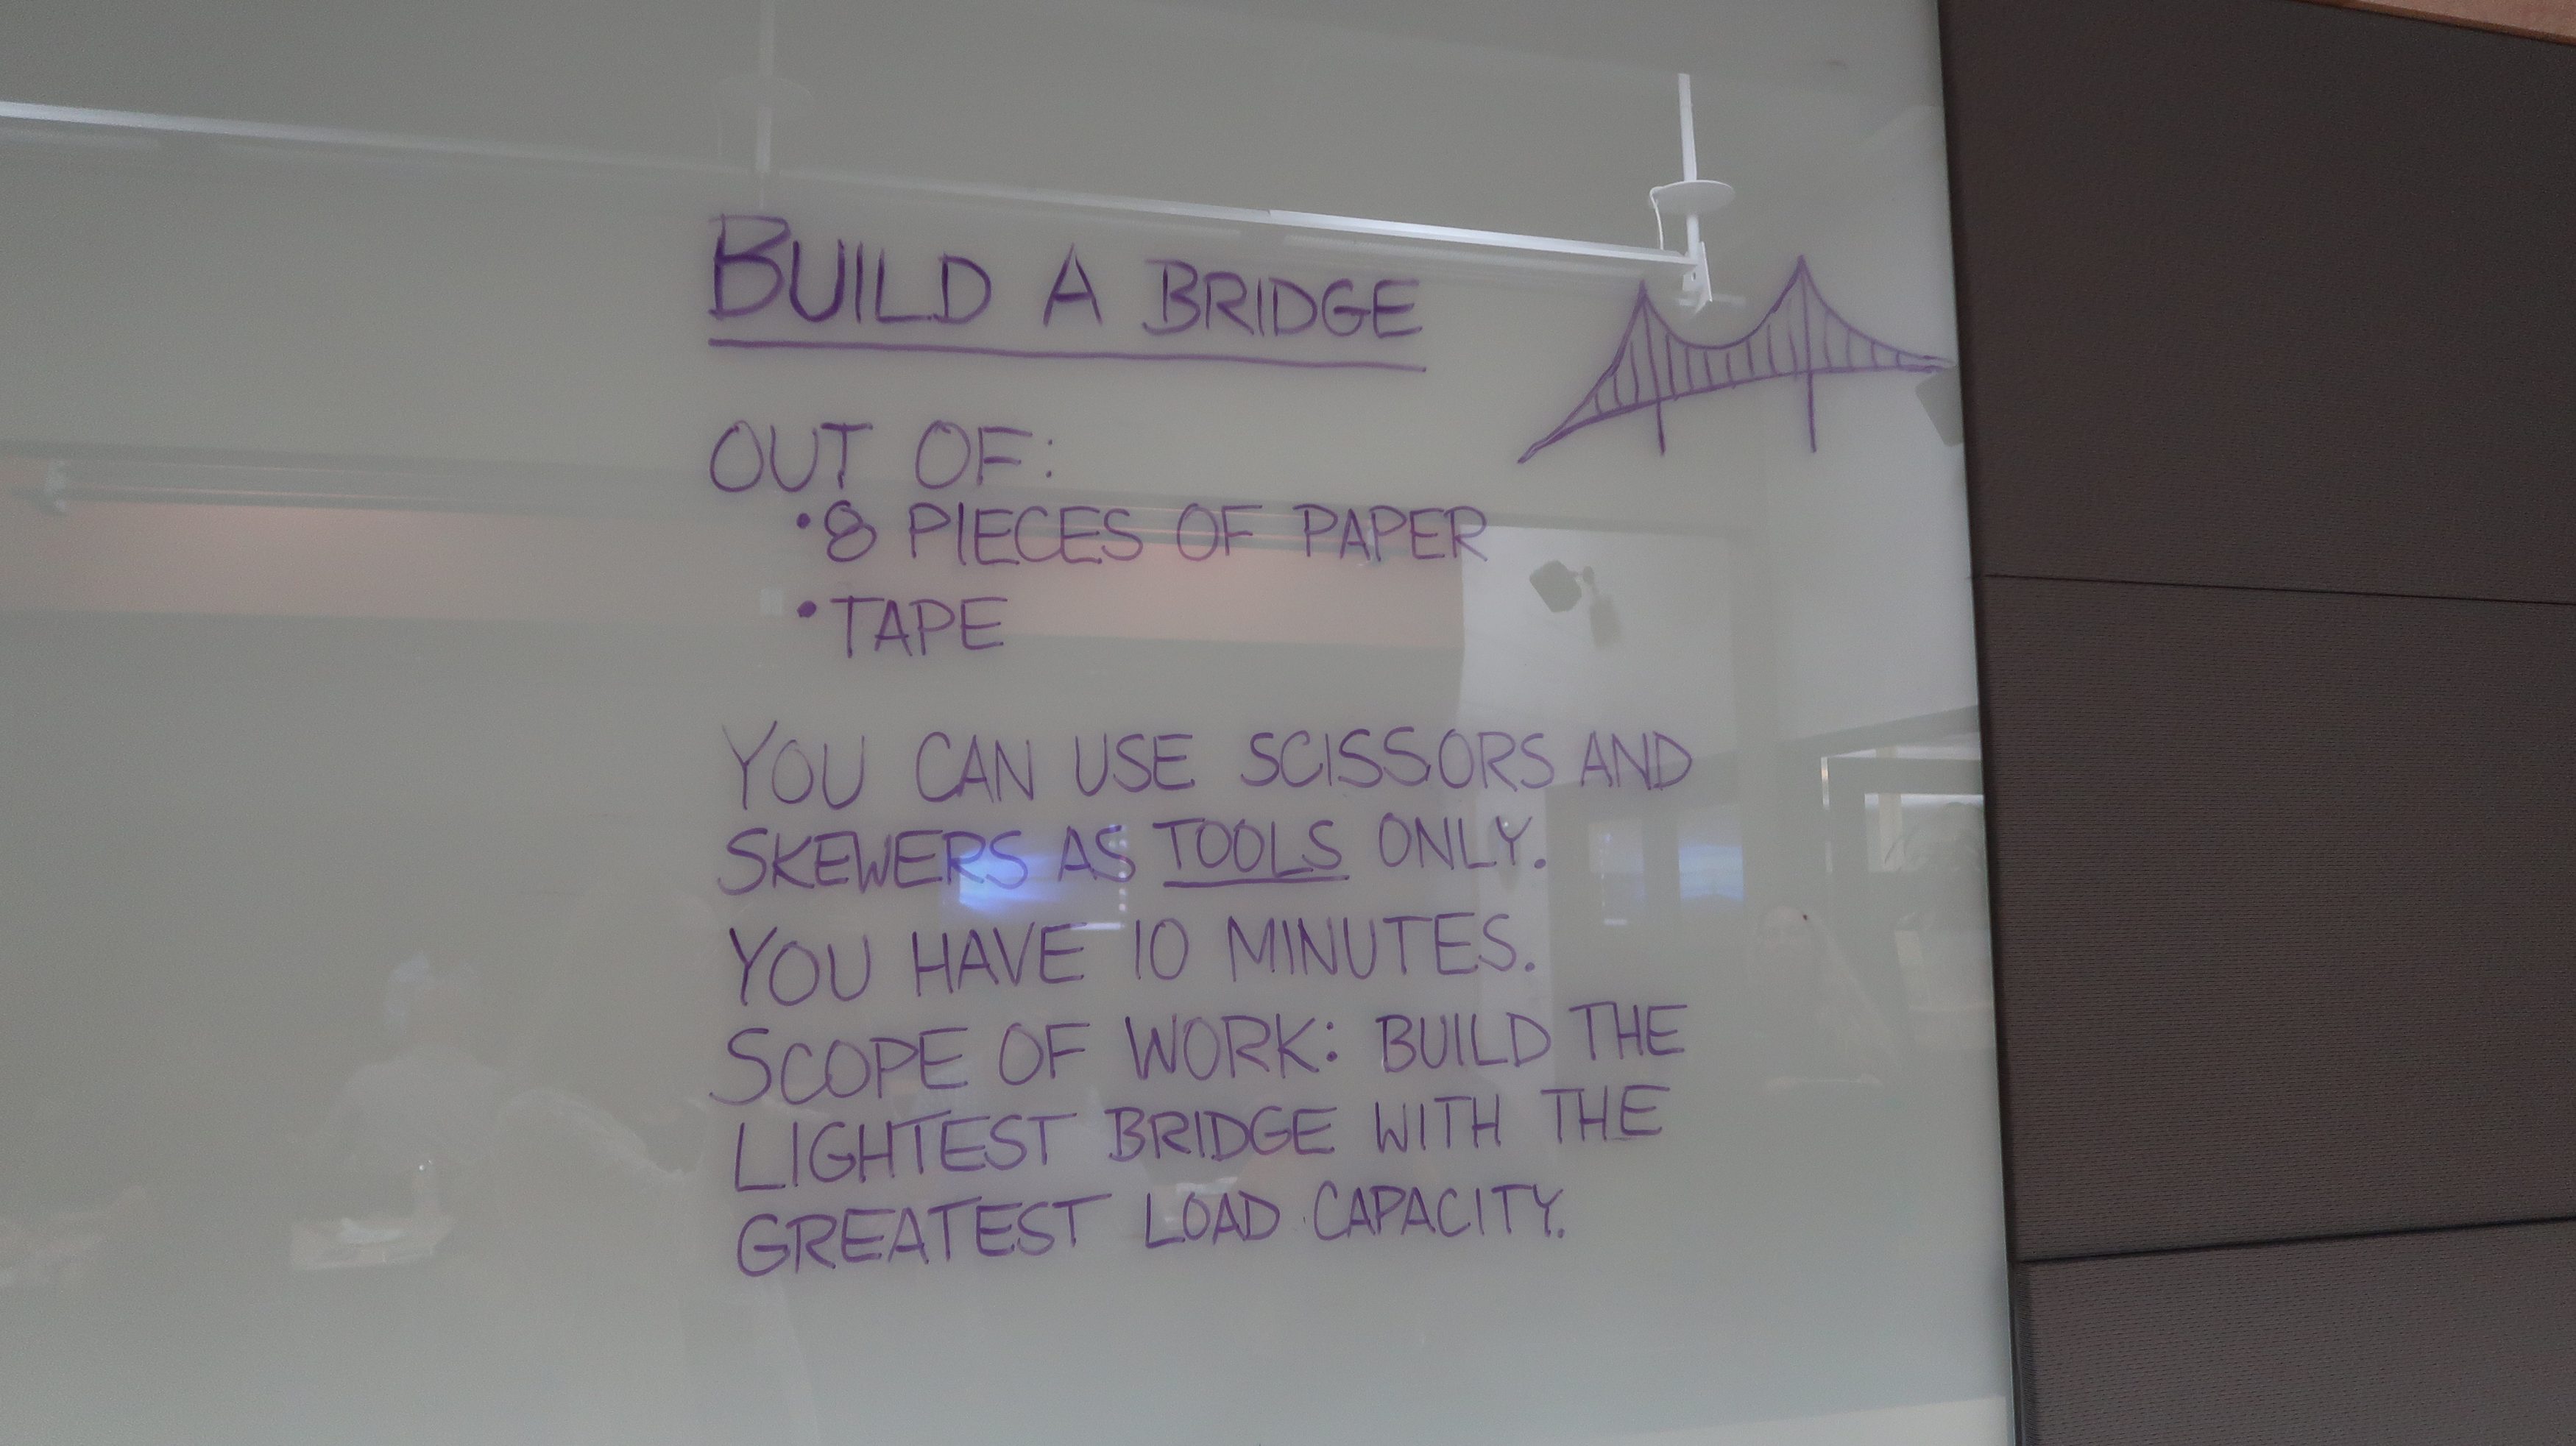 BUILD A BRIDGE
OUT OF:
• 8 PIECES OF PAPER
• TAPE
YOU CAN USE SCISSORS AND
SKEWERS AS TOOLS ONLY.
YOU HAVE 10 MINUTES.
SCOPE OF WORK: BUILD THE
LIGHTEST BRIDGE WITH THE
GREATEST LOAD CAPACITY.